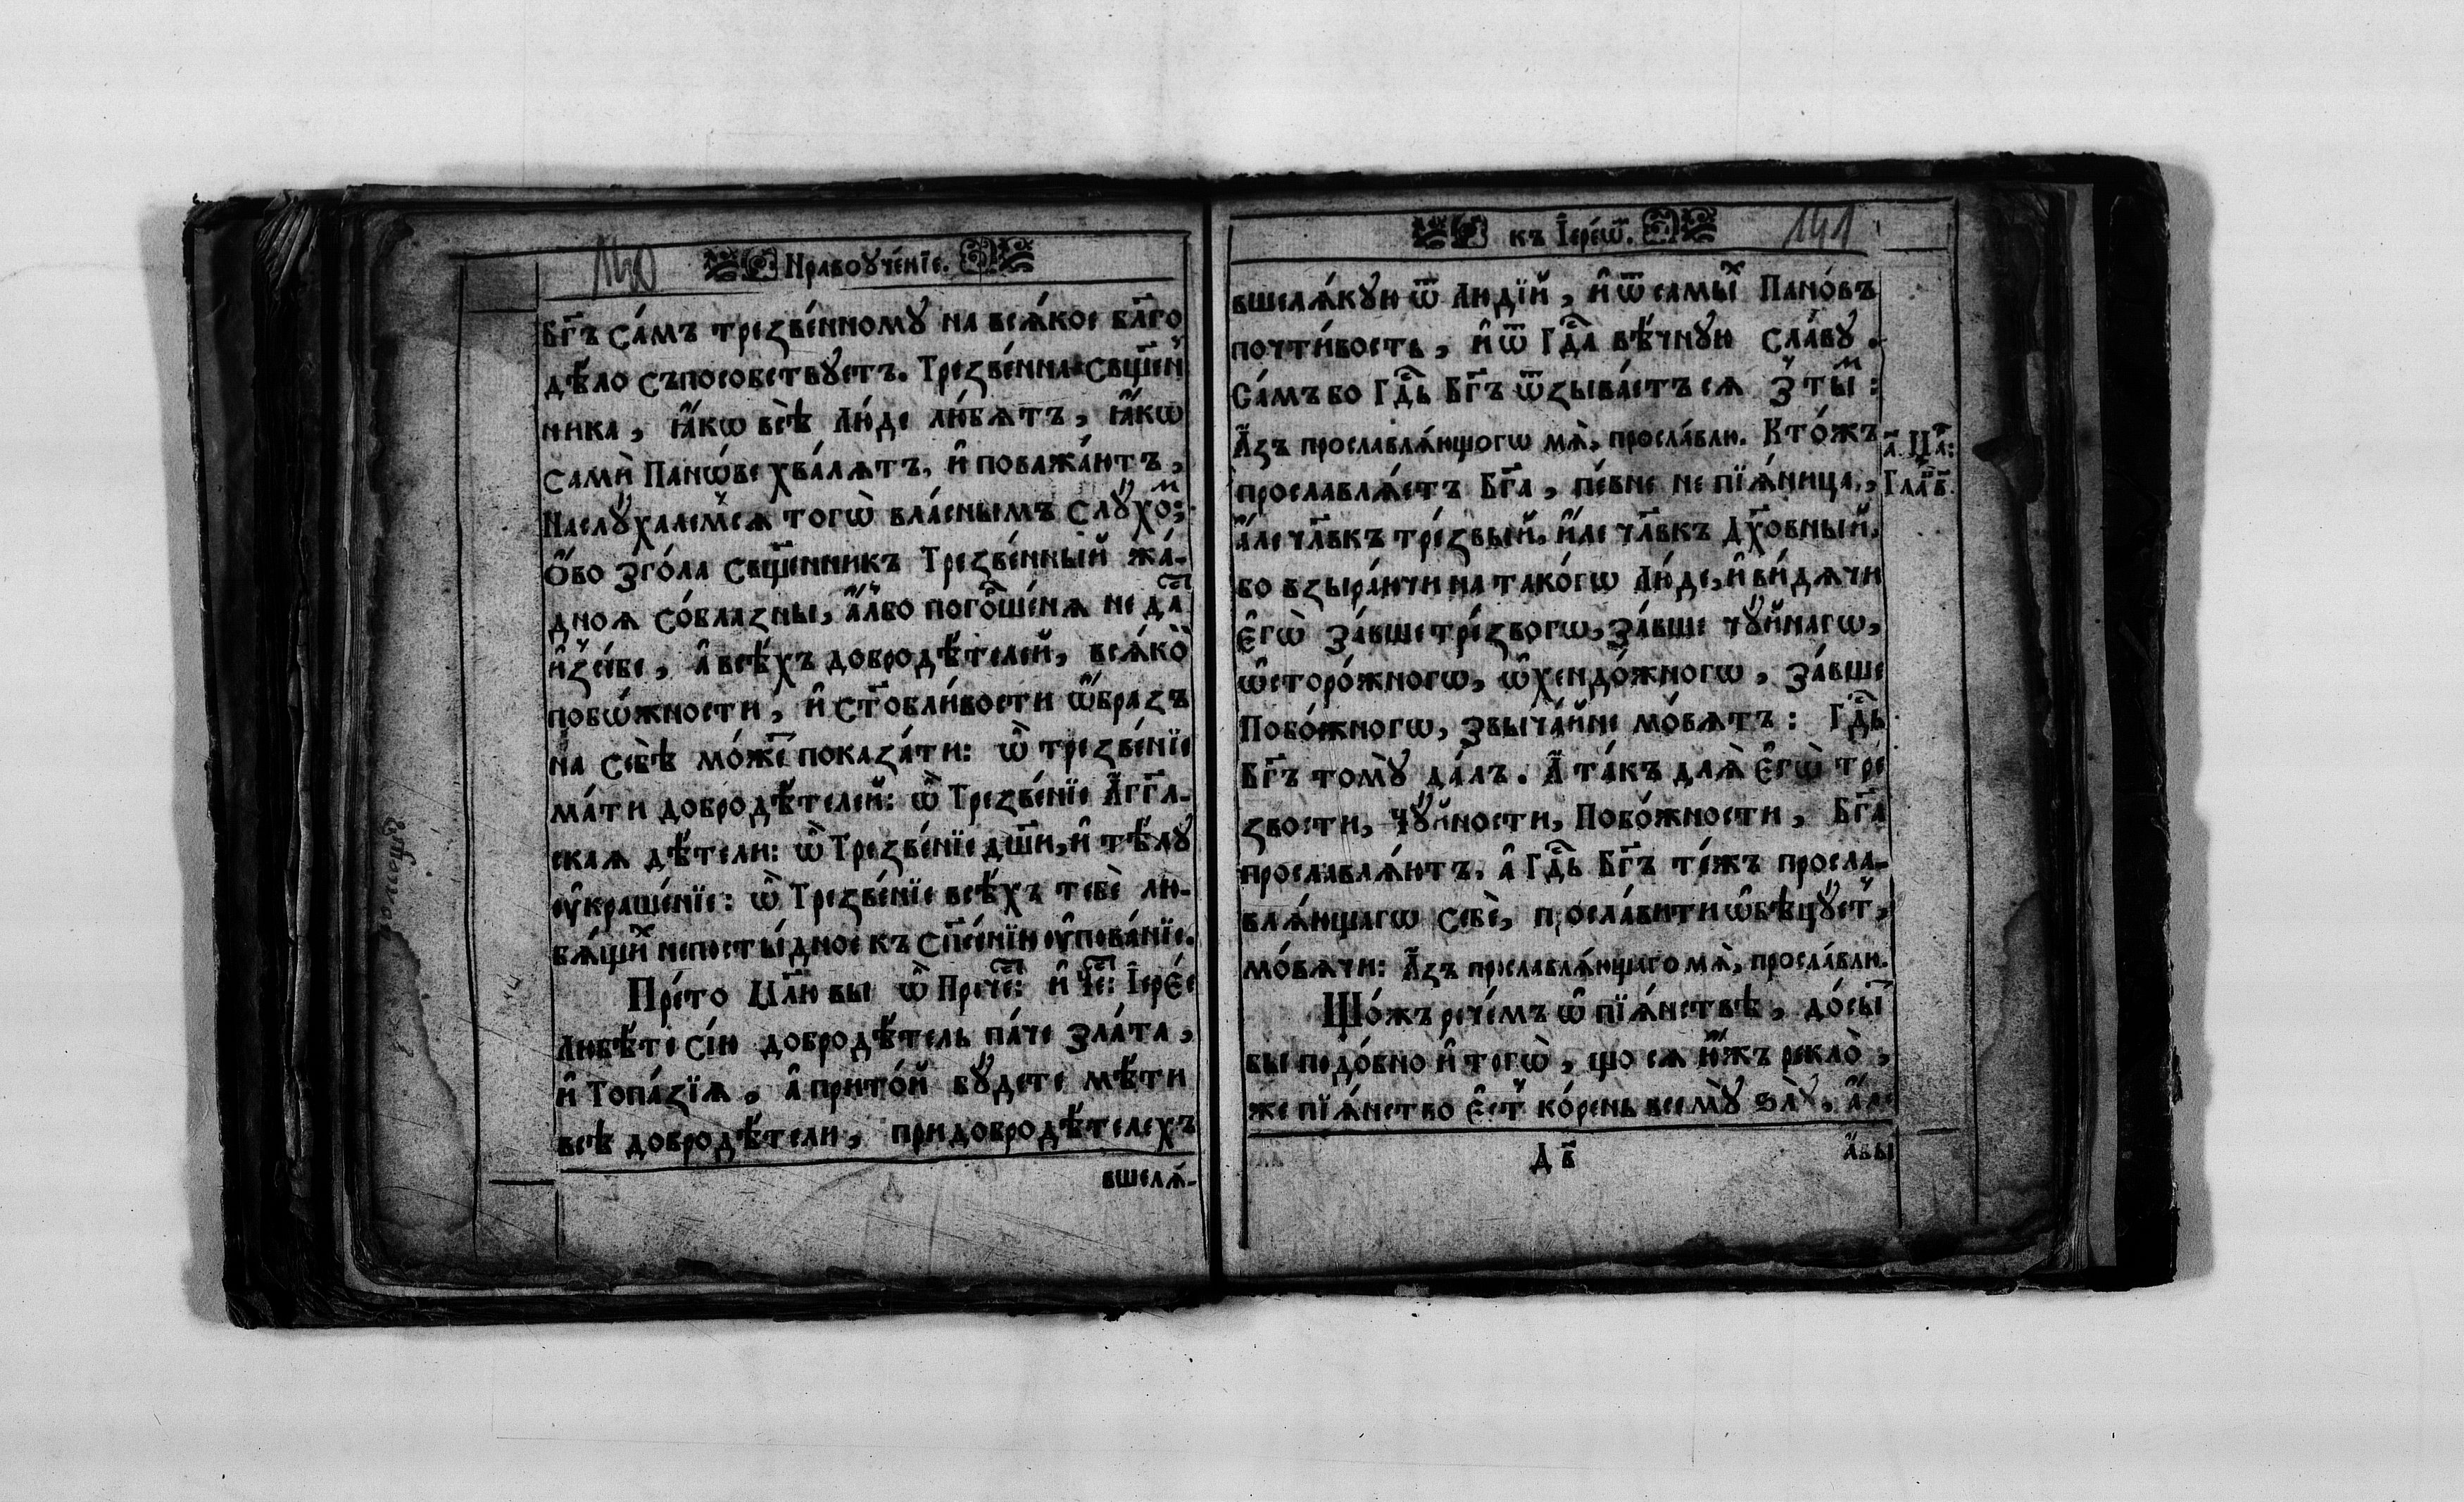 140
Нравоꙋче́нїе.
Бг҃ъ Са́мъ трезве́нномꙋ на вся́кое бл҃го
дѣ́ло съпособствꙋетъ. Трезве́нна Сщ҃е́н
ника, ꙗ҆́кѡ всѣ̀ Лю́де лю́бѧтъ, ꙗ҆́кѡ
самѝ Панѡ́ве хва́лѧтъ, и҆ поважа́ютъ,
Наслꙋ́халемсѧ тогѡ̀ вла́снымъ Слꙋ́хоⷨ:
Ѻ҆́бо Зго́ла Сщ҃е́нникъ Трезве́нный жа́-
дноѧ Со́блазны, а҆́лбо погоⷬше́нѧ не даⷭ҇тъ
и҆ꙁсе́бе, а҆ всѣ́хъ добродѣ́телей, вся́коⷪ
побѡ́жности, и҆ ст҃обли́вости ѡ҆́бразъ
на Се́бѣ мо́жеⷮ показа́ти: ѽ трезве́нїе
ма́ти добродѣ́телей: ѽ Трезве́нїе А҆́гг҃л-
скаѧ дѣ́тели: ѽ Трезве́нїе дш҃и, и҆ тѣ́лꙋ
оу҆краше́нїе: ѽ Трезве́нїе всѣ́хъ тебѐ лю-
бѧ́щиⷯ непосты́дное къ Сп҃се́нїю оу҆пова́нїе.
Пре́то Цѣ҃лю вы ѽ Прⷱ҇е: и҆ Чⷭ҇е: І҆ере́е
Любѣ́те Сі́ю добродѣ́тель па́че Зла́та,
и҆ Топа́зїѧ, а҆ прито́й бꙋ́дете мѣ́ти
всѣ добродѣ́тели, придобродѣ́телехъ
вшелѧ́-
къ І҆ере́ѡⷨ.
141
вшелѧ́кꙋю ѿ Людїй, и҆ ѿ самыⷯ Пано́въ
почти́вость, и҆ ѿ Гдⷭ҇а вѣ́чнꙋю Сла́вꙋ.
Са́мъ бо Гдⷭ҇ь Бг҃ъ ѿзыва́етъ сѧ Зтыⷨ:
А҆́зъ прославлѧ́ющогѡ мѧ̀, просла́влю. Кто́жъ
прославлѧ́етъ Бг҃а, пе́вне не пїѧ́ница,
а҆́ле чл҃вкъ тре́звый, и҆́ле чл҃вкъ Дх҃о́вный,
бо взыра́ючи на тако́гѡ Лю́де, и҆ ви́дѧчи
Е҆гѡ̀ За́вше тре́звогѡ, За́вше чꙋ́йнагѡ,
ѡ҆сторо́жногѡ, ѡ҆хендо́жногѡ, За́вше
Побо́жногѡ, Звыча́йне мо́вѧтъ: Гдⷭ҇ь
Бг҃ъ томꙋ̀ да́лъ. А҆ та́къ длѧ̀ Е҆гѡ̀ тре́
звости, Чꙋ́йности, Побо́жности, Бг҃а
прославлѧ́ютъ, а҆ Гдⷭ҇ь Бг҃ъ те́жъ просла-
влѧ́ющагѡ Себѐ, просла́вити ѡ҆бѣцꙋ́етⸯ,
мо́вѧчи: А҆́зъ прославлѧ́ющаго мѧ̀, просла́влю.
Що́жъ рече́мъ ѽ пїѧ́нствѣ, до́сыⷮ
бы подо́бно и҆ тогѡ̀, що сѧ ю҆́жъ рекло̀,
же пїѧ́нство Е҆́стⸯ ко́рень всемꙋ̀ Ѕлꙋ̀, а҆́ле
Д҃в
а҆́бы
а҃. Цр҃:
Глаⷡ҇ в҃.